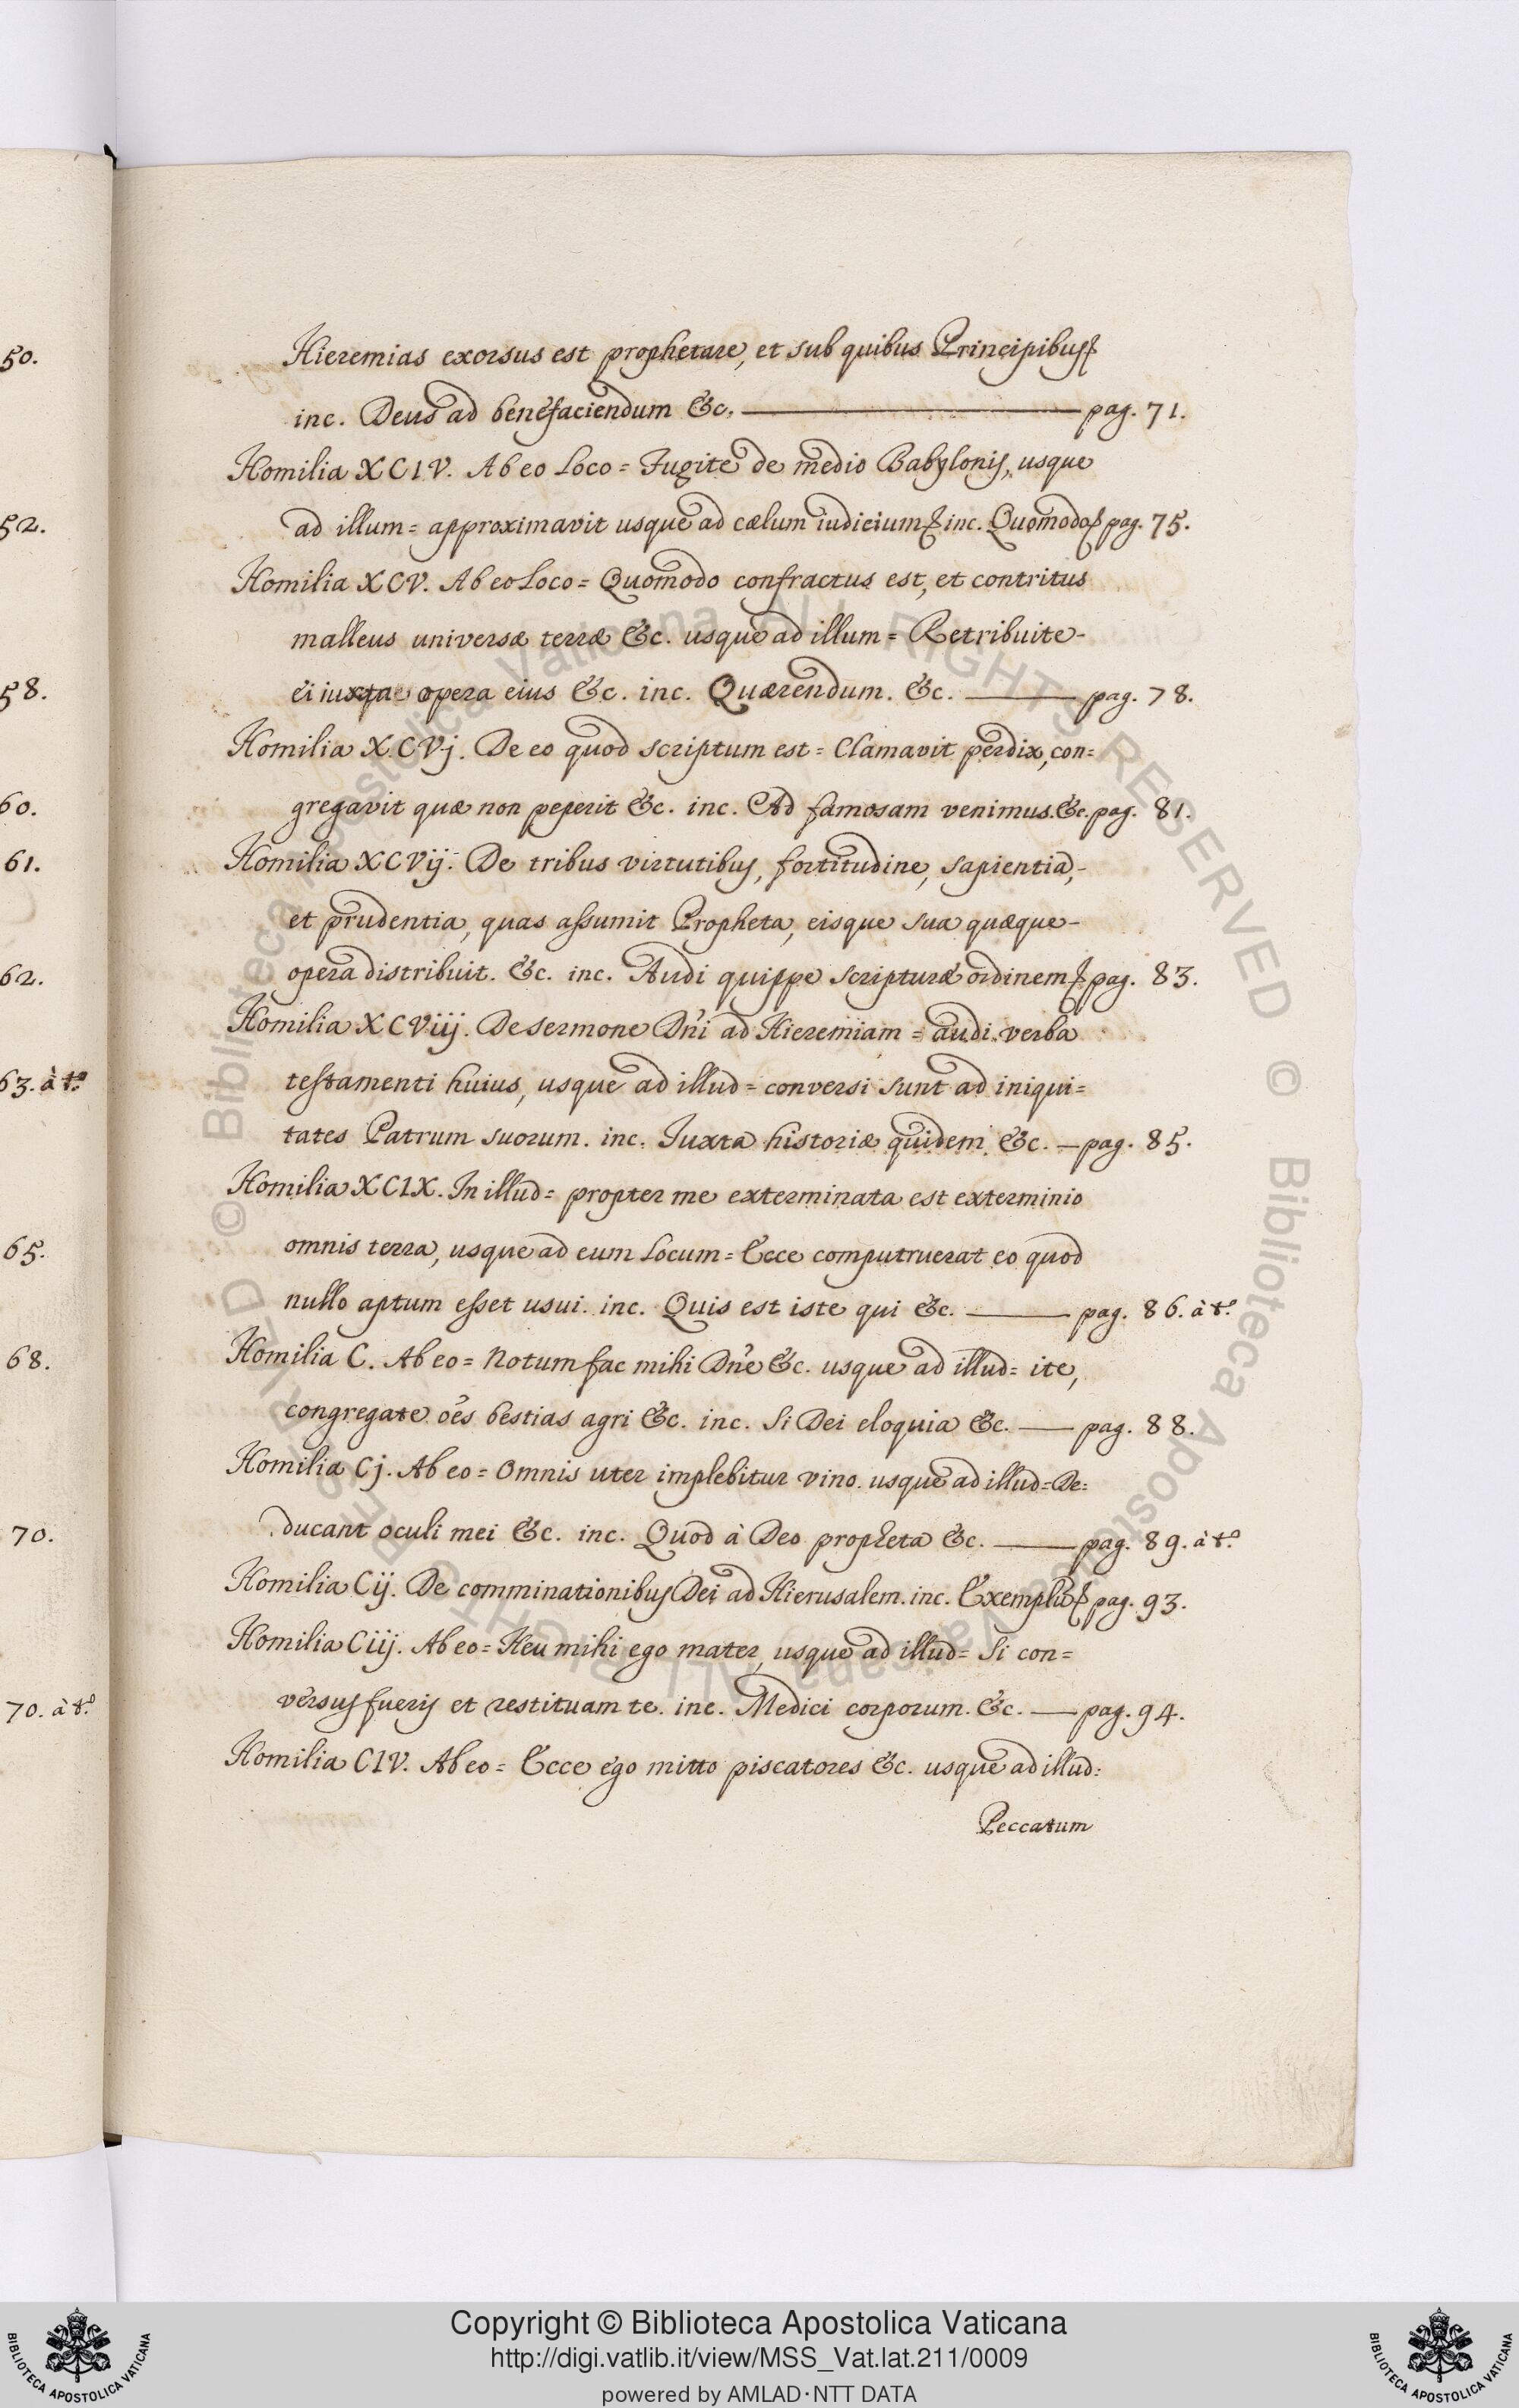 50.
52.
58.
60.
61.
62.
63. à t.º
65.
68.
70.
70. à t.º
Hieremias exorsus est prophetare, et sub quibus Principibus
inc. Deus ad benefaciendum &c. pag. 71.
Homilia XCIV. Ab eo Loco = Fugite de medio Babylonis, usque
ad illum = approximavit usque ad cælum iudicium inc. Quomodo pag. 75.
Homilia XCV. Ab eo Loco = Quomodo confractus est, et contritus
malleus universæ terræ &c. usque ad illum = Retribuite-
ei iuxta opera eius &c. inc. Quærendum. &c. pag. 78.
Homilia XCVj. De eo quod scriptum est = Clamavit perdix, con=
gregavit quæ non peperit &c. inc. Ad famosam venimus. &c. pag. 81.
Homilia XCVij. De tribus virtutibus, fortitudine, sapientia,-
et prudentia, quas assumit Propheta, eisque sua quæque-
opera distribuit. &c. inc. Audi quippe scripturæ ordinem pag. 83.
Homilia XCViij. De sermone Dñi ad Hieremiam = audi verba
testamenti huius, usque ad illud = conversi sunt ad iniqui=
tates Patrum suorum. inc. Iuxta historiæ quidem &c. — pag. 85.
Homilia XCIX. In illud = propter me exterminata est exterminio
omnis terra, usque ad eum Locum = Ecce computruerat eo quod
nullo aptum esset usui. inc. Quis est iste qui &c. pag. 86. à t.º
Homilia C. Ab eo = Notum fac mihi Dñe &c. usque ad illud = ite,
congregate oẽs bestias agri &c. inc. Si Dei eloquia &c. — pag. 88.
Homilia Cj. Ab eo = Omnis uter implebitur vino. usque ad illud = De=
ducant oculi mei &c. inc. Quod à Deo propheta &c. pag. 89. à t.º
Homilia Cij. De comminationibus Dei ad Hierusalem. inc. Exemplũ pag. 93.
Homilia Ciij. Ab eo = Heu mihi ego mater, usque ad illud = Si con=
versus fueris et restituam te. inc. Medici corporum. &c. — pag. 94.
Homilia CIV. Ab eo = Ecce ego mitto piscatores &c. usque ad illud=
Peccatum
© Biblioteca Apostolica Vaticana ALL RIGHTS RESERVED © Biblioteca Apostolica Vaticana ALL RIGHTS RESERVED
Copyright © Biblioteca Apostolica Vaticana
http://digi.vatlib.it/view/MSS_Vat.lat.211/0009
powered by AMLAD·NTT DATA
BIBLIOTECA APOSTOLICA VATICANA
BIBLIOTECA APOSTOLICA VATICANA